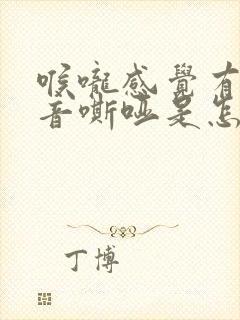 喉嚨感覺有
音嘶啞是怎
丁博